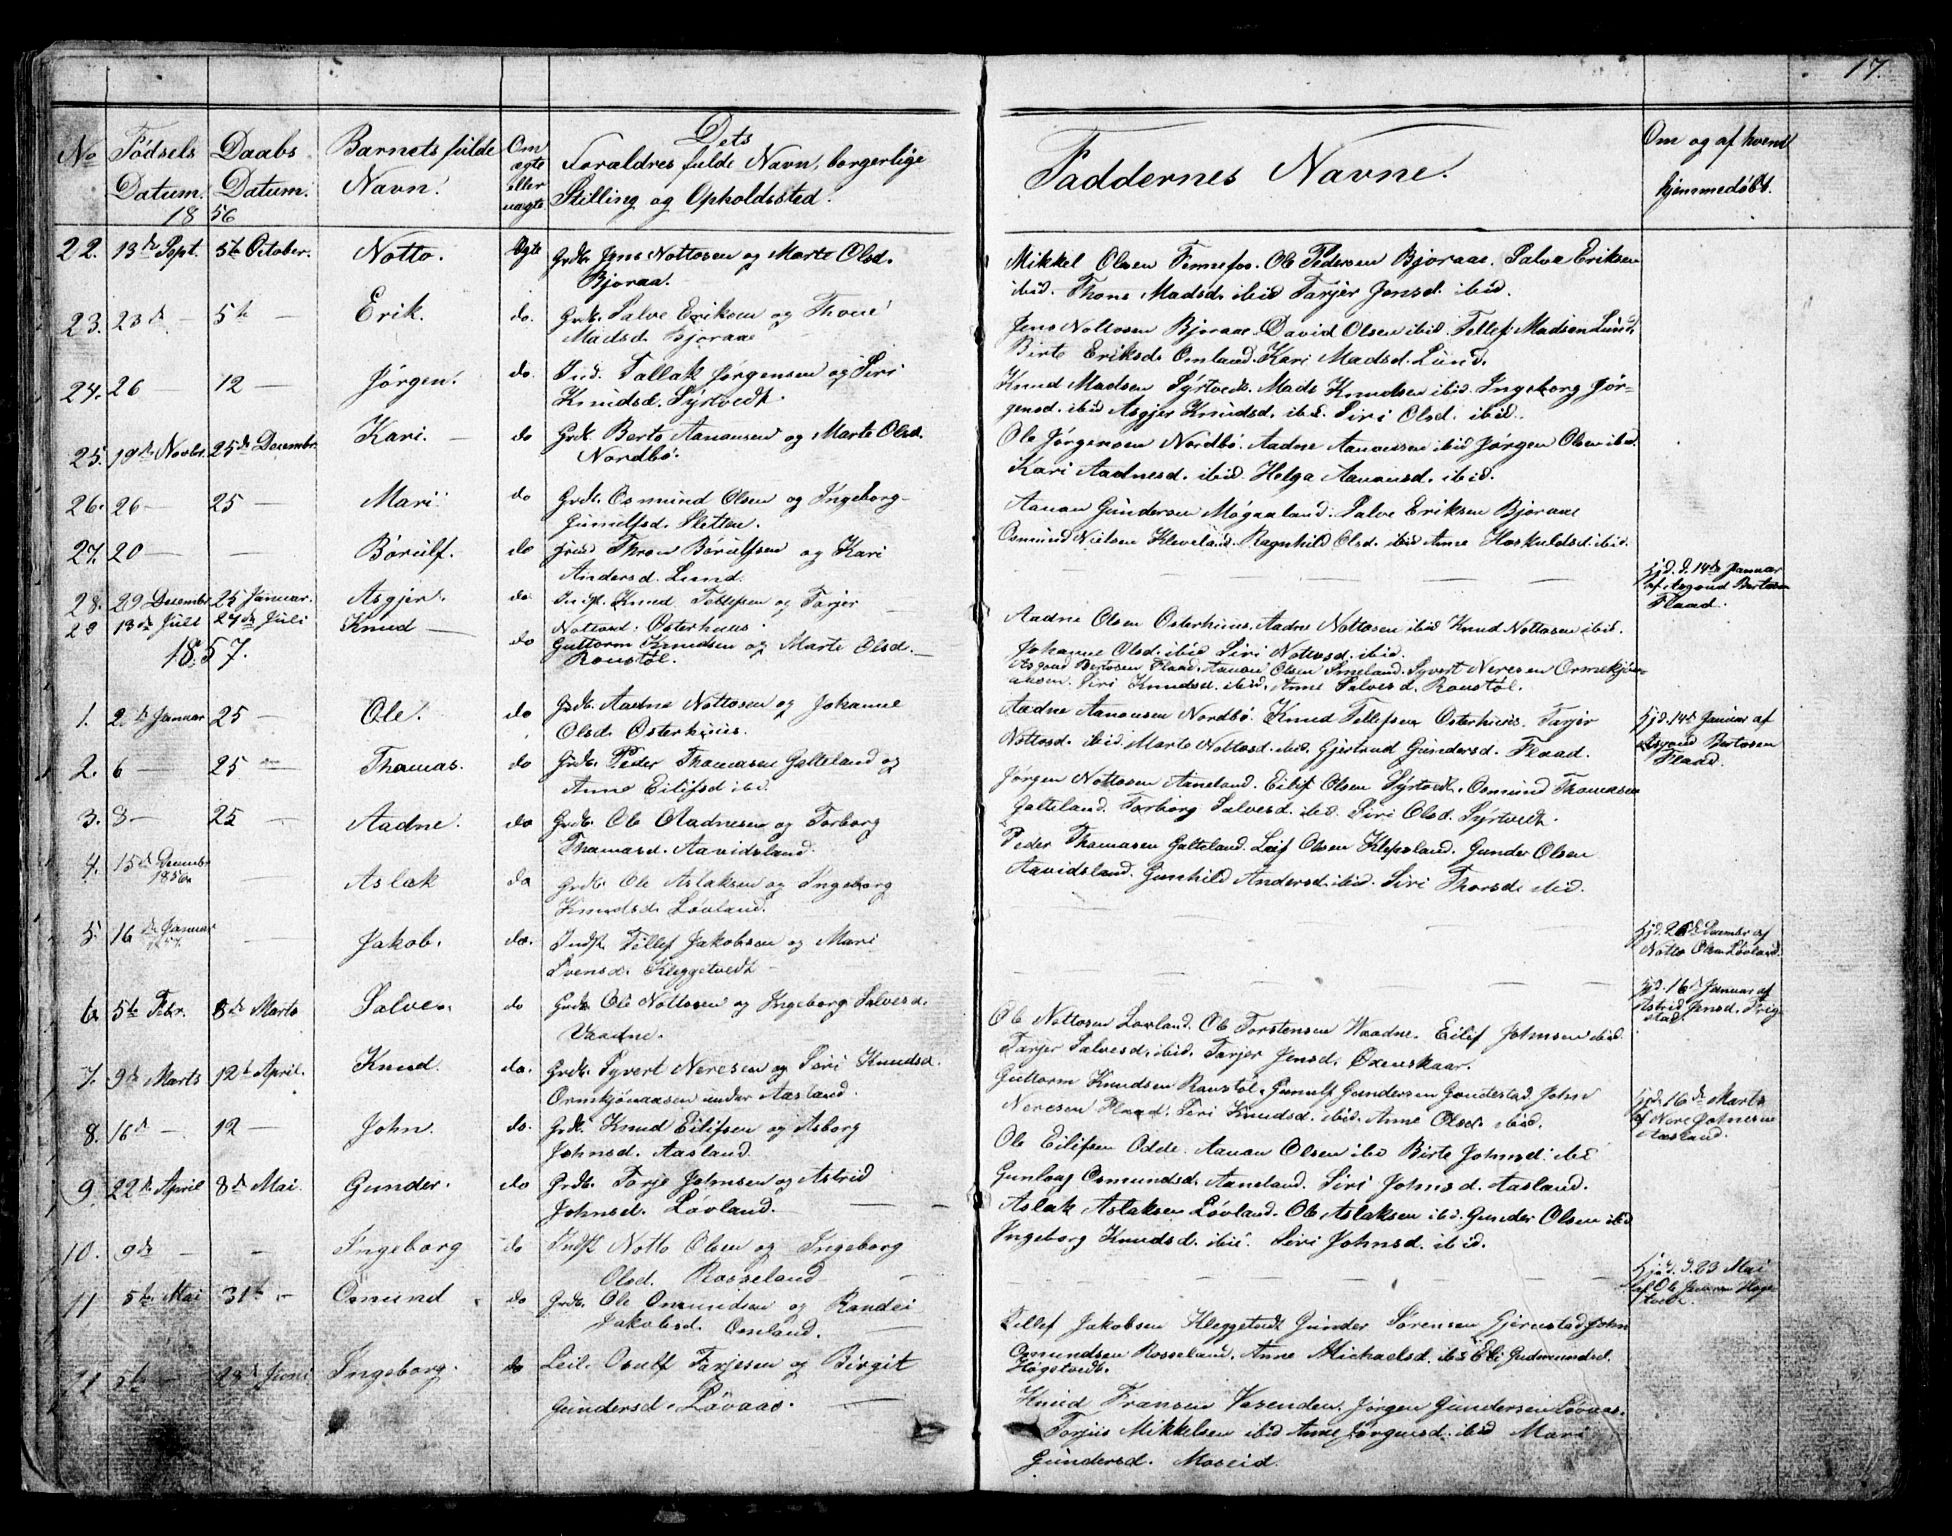 17.
No Fødsels Datum. Daabs Datum. Barnets fulde Navn. Om ægte eller uægte Dets Forældres fulde Navn, borgerlige Stilling og Opholdssted.
Faddernes Navne.
Om og af hvem hjemmedøbt.
1856
22. 13de Sept. 5te October. Notto. Ægte Grdb. Jens Nottosen og Marte Olsd.
Bjoraa.
23. 23de — 5te — Erik. do. Grdb. Salve Eriksen og Thone
Madsd. Bjoraae
24. 26 12 — Jørgen. do. Ind. Tallak Jørgensen og Siri
Knudsd. Syrtvedt.
25. 19de Novbr. 25de Decembr. Kari. — do Grdb. Berto Aanonsen og Marte Olsd.
Nordbø.
26. 26 — 25 — Mari. do Grdb. Osmund Olsen og Ingeborg
Gunulfsd. Sletten.
27. 20 — — Børulf. do Thron Børulfsen og Kari
Andersd. Lund.
28. 29 Decembr 25 Januar. Asgjer. do. Indst. Knud Tellefsen og Tarjer
Nottosd. Osterhuus.
13de Juli 27de Juli Knud — do Guttorm Knudsen og Marte Olsd. —
Roustøl.
1857.
1. 2de Januar 25 — Ole. do Grdb. Aadne Nottosen og Johanne
Olsd. Osterhuus.
2. 6 — 25 — Thomas. do Grdb. Peder Thomasen Galteland og
Anne Eilifsd ibid.
3. 8 — 25 — Aadne. do Grdb. Ole Aadnesen og Torborg
Thomasd. Aavidsland.
4. 15de Decembr 1856. — Aslak do Grdb. Ole Aslaksen og Ingeborg
Knudsd. Løvland.
5. 16de Januar 1857. Jakob. do. Indst Tellef Jakobsen og Mari
Svensd. Kleggetvedt
6. 5te Febr. 8de Marts Salve. do Grdb. Ole Nottosen og Ingeborg Salvesd.
Vaadne.
7. 9de Marts 12te April. Knud. do. Grdb. Syvert Neresen og Siri Knudsd.
Ormekjønaasen under Aasland.
8. 16de — 12 — John. do. Grdb. Knud Eilifsen og Asborg
Johnsd. Aasland.
9. 22de April 8de Mai. Gunder. do Grdb. Tarje Johnsen og Astrid
Johnsd. Løvland. —
10. 9de — — Ingeborg do Indst Notto Olsen og Ingeborg
Olsd. Rosseland —
11 5te Mai 31te — Osmund do Grdb. Ole Osmundsen og Randei
Jakobsd. Omland.
5te — 28de Juni Ingeborg. do Leil. Osulf Tarjesen og Birgit
Gundersd. Løvaas. —
Mikkel Olsen Fennefos. Ole Pedersen Bjoraae. Salve Eriksen
ibid. Thone Madsd. ibid Tarjer Jensd. ibid.
Jens Nottosen Bjoraae. David Olsen ibid. Tellef Madsen Lund.
Birte Eriksd. Omland. Kari Madsd. Lund.
Knud Madsen Syrtvedt. Mads Knudsen ibid. Ingeborg Jør-
gensd. ibid Asgjer Knudsd. ibid. Siri Olsd. ibid.
Ole Jørgensen Nordbø. Aadne Aanonsen ibid Jørgen Olsen ibid.
Kari Aadnesd. ibid. Helga Aanonsd. ibid.
Aanon Gundersen Møgaaland. Salve Eriksen Bjoraae
Osmund Nielsen Kleveland. Ragnhild Olsd. ibid Anne Haskuldsd. ibid.
Hjd. d. 14de Januar
af Asgoud Bertosen
Flaad.
Aadne Olsen Osterhuus. Aadne Nottosen ibid Knud Nottosen ibid.
Johanne Olsd. ibid Siri Nottosd. ibid.
Asgoud Bertosen Flaad. Aanon Olsen Smeland. Syvert Neresen Ormekjøn-
aasen. Siri Knudsd. ibid. Anne Salvesd. Roustøl.
Aadne Aanonsen Nordbø. Knud Tellefsen Osterhuus. Tarjer
Nottosd. ibid. Marte Nottosd. ibid. Gjertrud Gundersd. Flaad.
Hjd. 14de Januar af
Asgoud Bertosen
Flaad.
Jørgen Nottosen Aaneland. Eilif Olsen Syrtvedt. Osmund Thomasen
Galteland. Torborg Salvesd. ibid. Siri Olsd. Syrtvedt.
Peder Thomasen Galteland. Leif Olsen Klepsland. Gunder Olsen
Aavidsland. Gunhild Andersd. ibid. Siri Thorsd. ibid.
Hjd. 26de Decembr af
Notto Olsen Løvland.
Hjd. 16de Januar af
Astrid Jensd. Frig-
stad.
Ole Nottosen Løvland. Ole Torstensen Vaadne. Eilif Johnsen ibid.
Tarjer Salvesd. ibid. Tarjer Jensd. Oxenskaar.
Guttorm Knudsen Roustøl. Gunulf Gundersen Gaudestad. John
Neresen Flaad. Siri Knudsd. ibid. Anne Olsd. ibid.
Hjd. 16de Marts
af Nere Johnsen
Aasland.
Ole Eilifsen Odde. Aanon Olsen ibid Birte Johnsd. ibid
Gunlaug Osmundsd. Aaneland. Siri Johnsd. Aasland.
Aslak Aslaksen Løvland. Ole Aslaksen ibid. Gunder Olsen ibid
Ingeborg Knudsd. ibid. Siri Johnsd. ibid.
Hjd. d. 23 Mai
af Ole Jensen Høge-
tvedt.
Tellef Jakobsen Kleggetvedt Gunder Sørensen Gjerustad John
Osmundsen Rosseland. Anne Michaelsd. ibid Eli Gudmundsd.
Høgetvedt.
Knud Fransen Vasenden. Jørgen Gundersen Løvaas.
Torjus Mikkelsen ibid Anne Jørgensd. ibid Mari
Gundersd. Moseid.